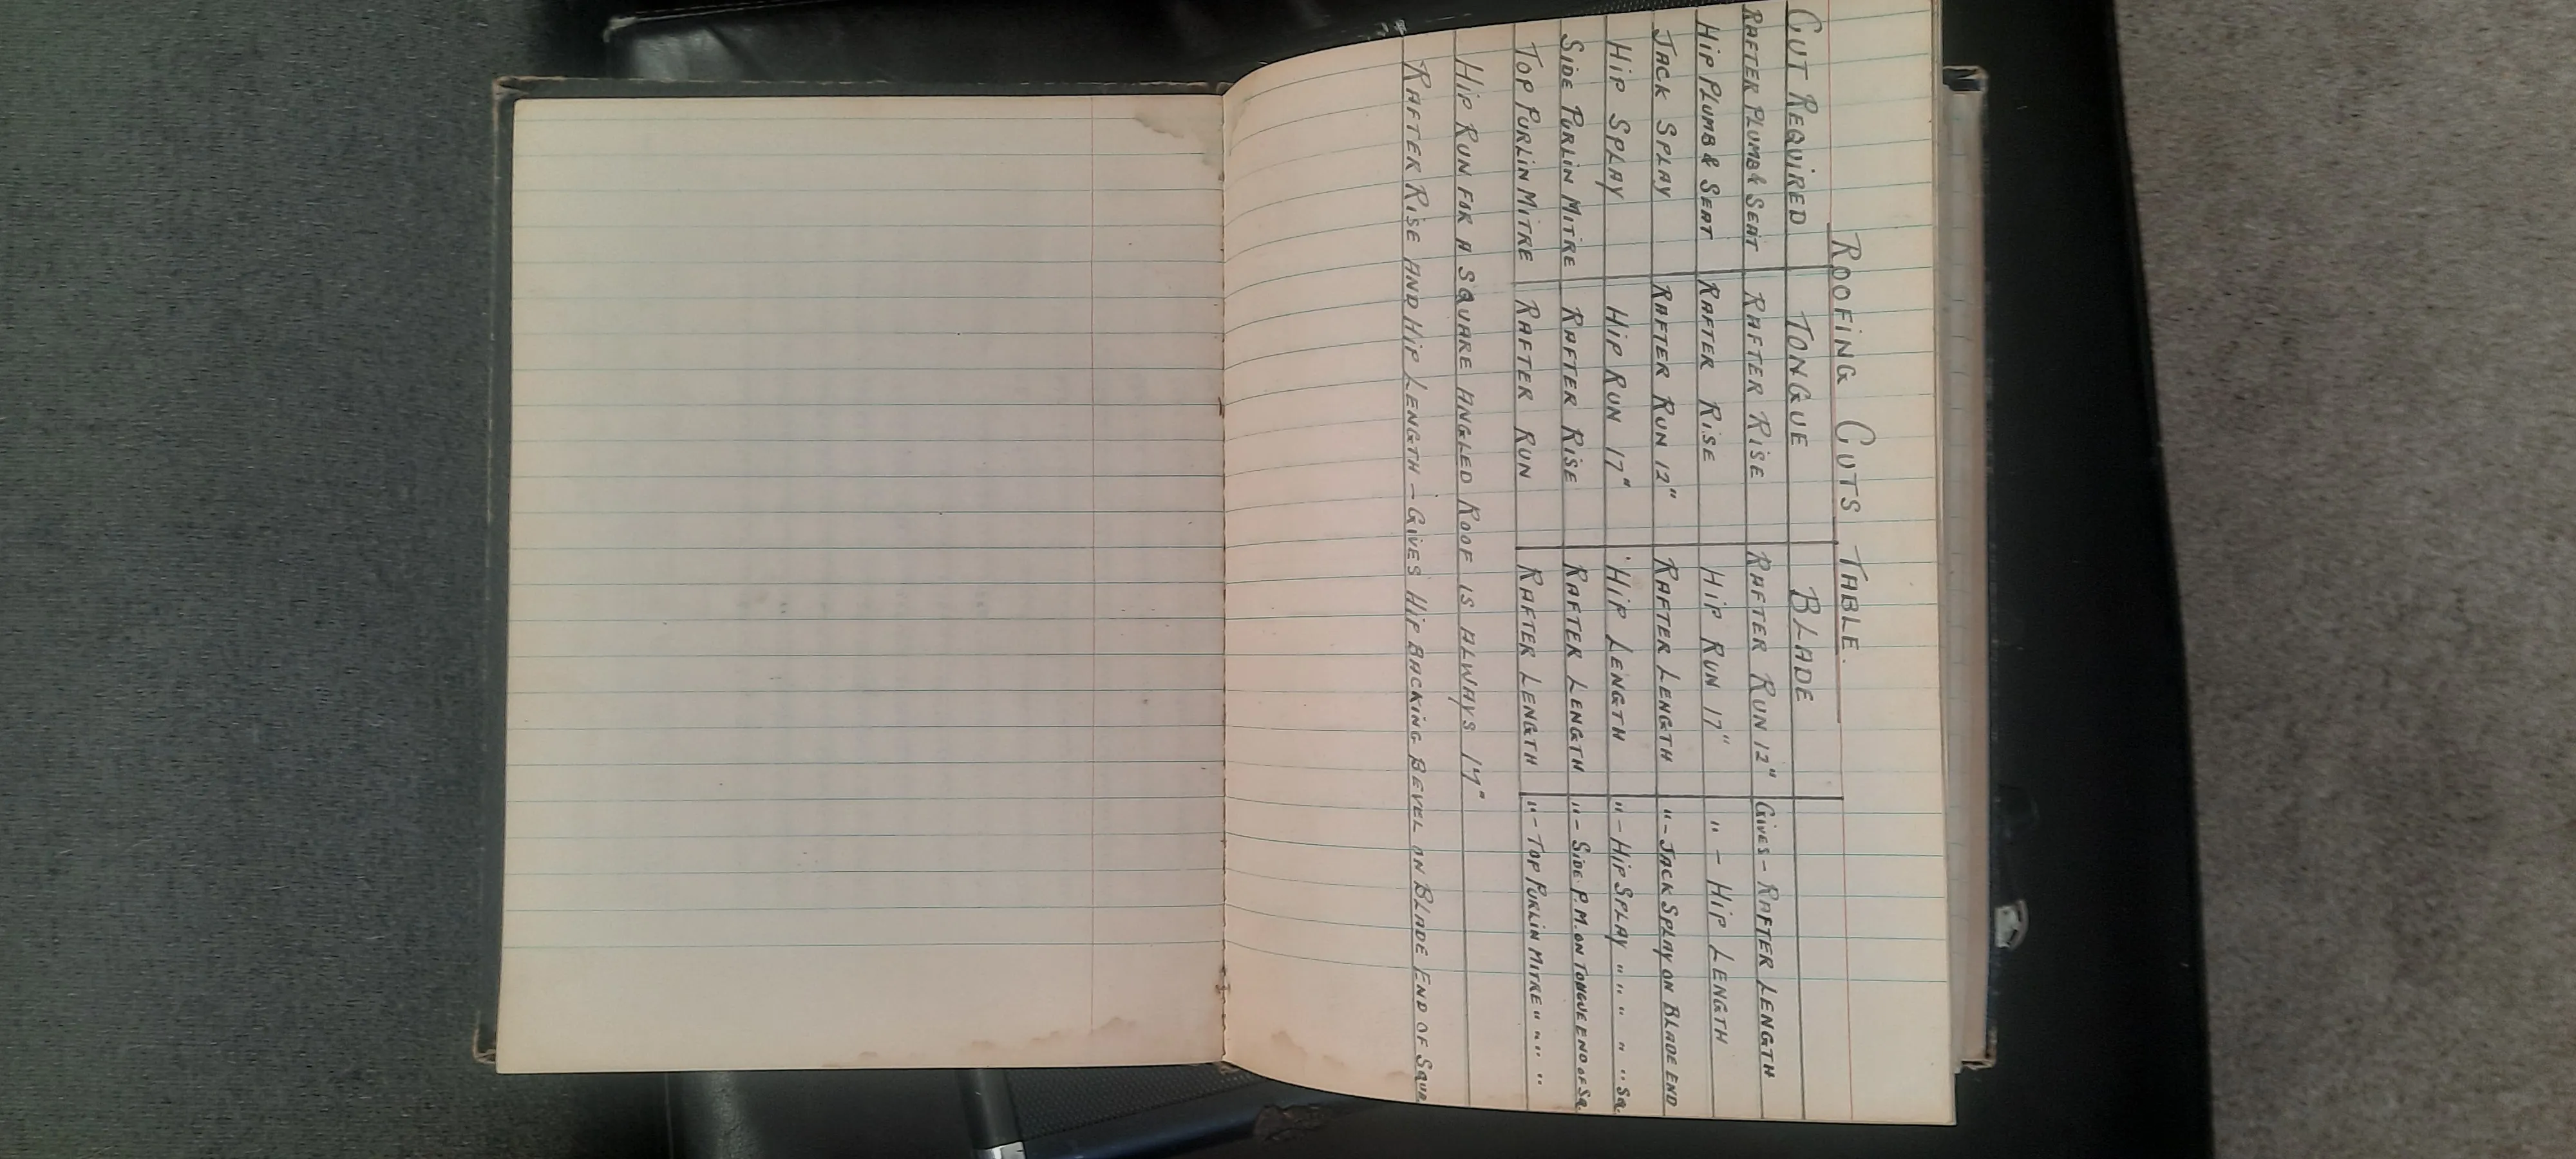 ROOFING CUTS TABLE.
CUT REQUIRED TONGUE BLADE
RAFTER PLUMB & SEAT RAFTER RISE RAFTER RUN 12" GIVES - RAFTER LENGTH
HIP PLUMB & SEAT RAFTER RISE HIP RUN 17" " - HIP LENGTH
JACK SPLAY RAFTER RUN 12" RAFTER LENGTH " - JACK SPLAY ON BLADE END
HIP SPLAY HIP RUN 17" HIP LENGTH " - HIP SPLAY " " " " SQ
SIDE PURLIN MITRE RAFTER RISE RAFTER LENGTH " - SIDE P.M. ON TONGUE END OF SQ
TOP PURLIN MITRE RAFTER RUN RAFTER LENGTH " - TOP PURLIN MITRE " " " "
HIP RUN FOR A SQUARE ANGLED ROOF IS ALWAYS 17"
RAFTER RISE AND HIP LENGTH - GIVES HIP BACKING BEVEL ON BLADE END OF